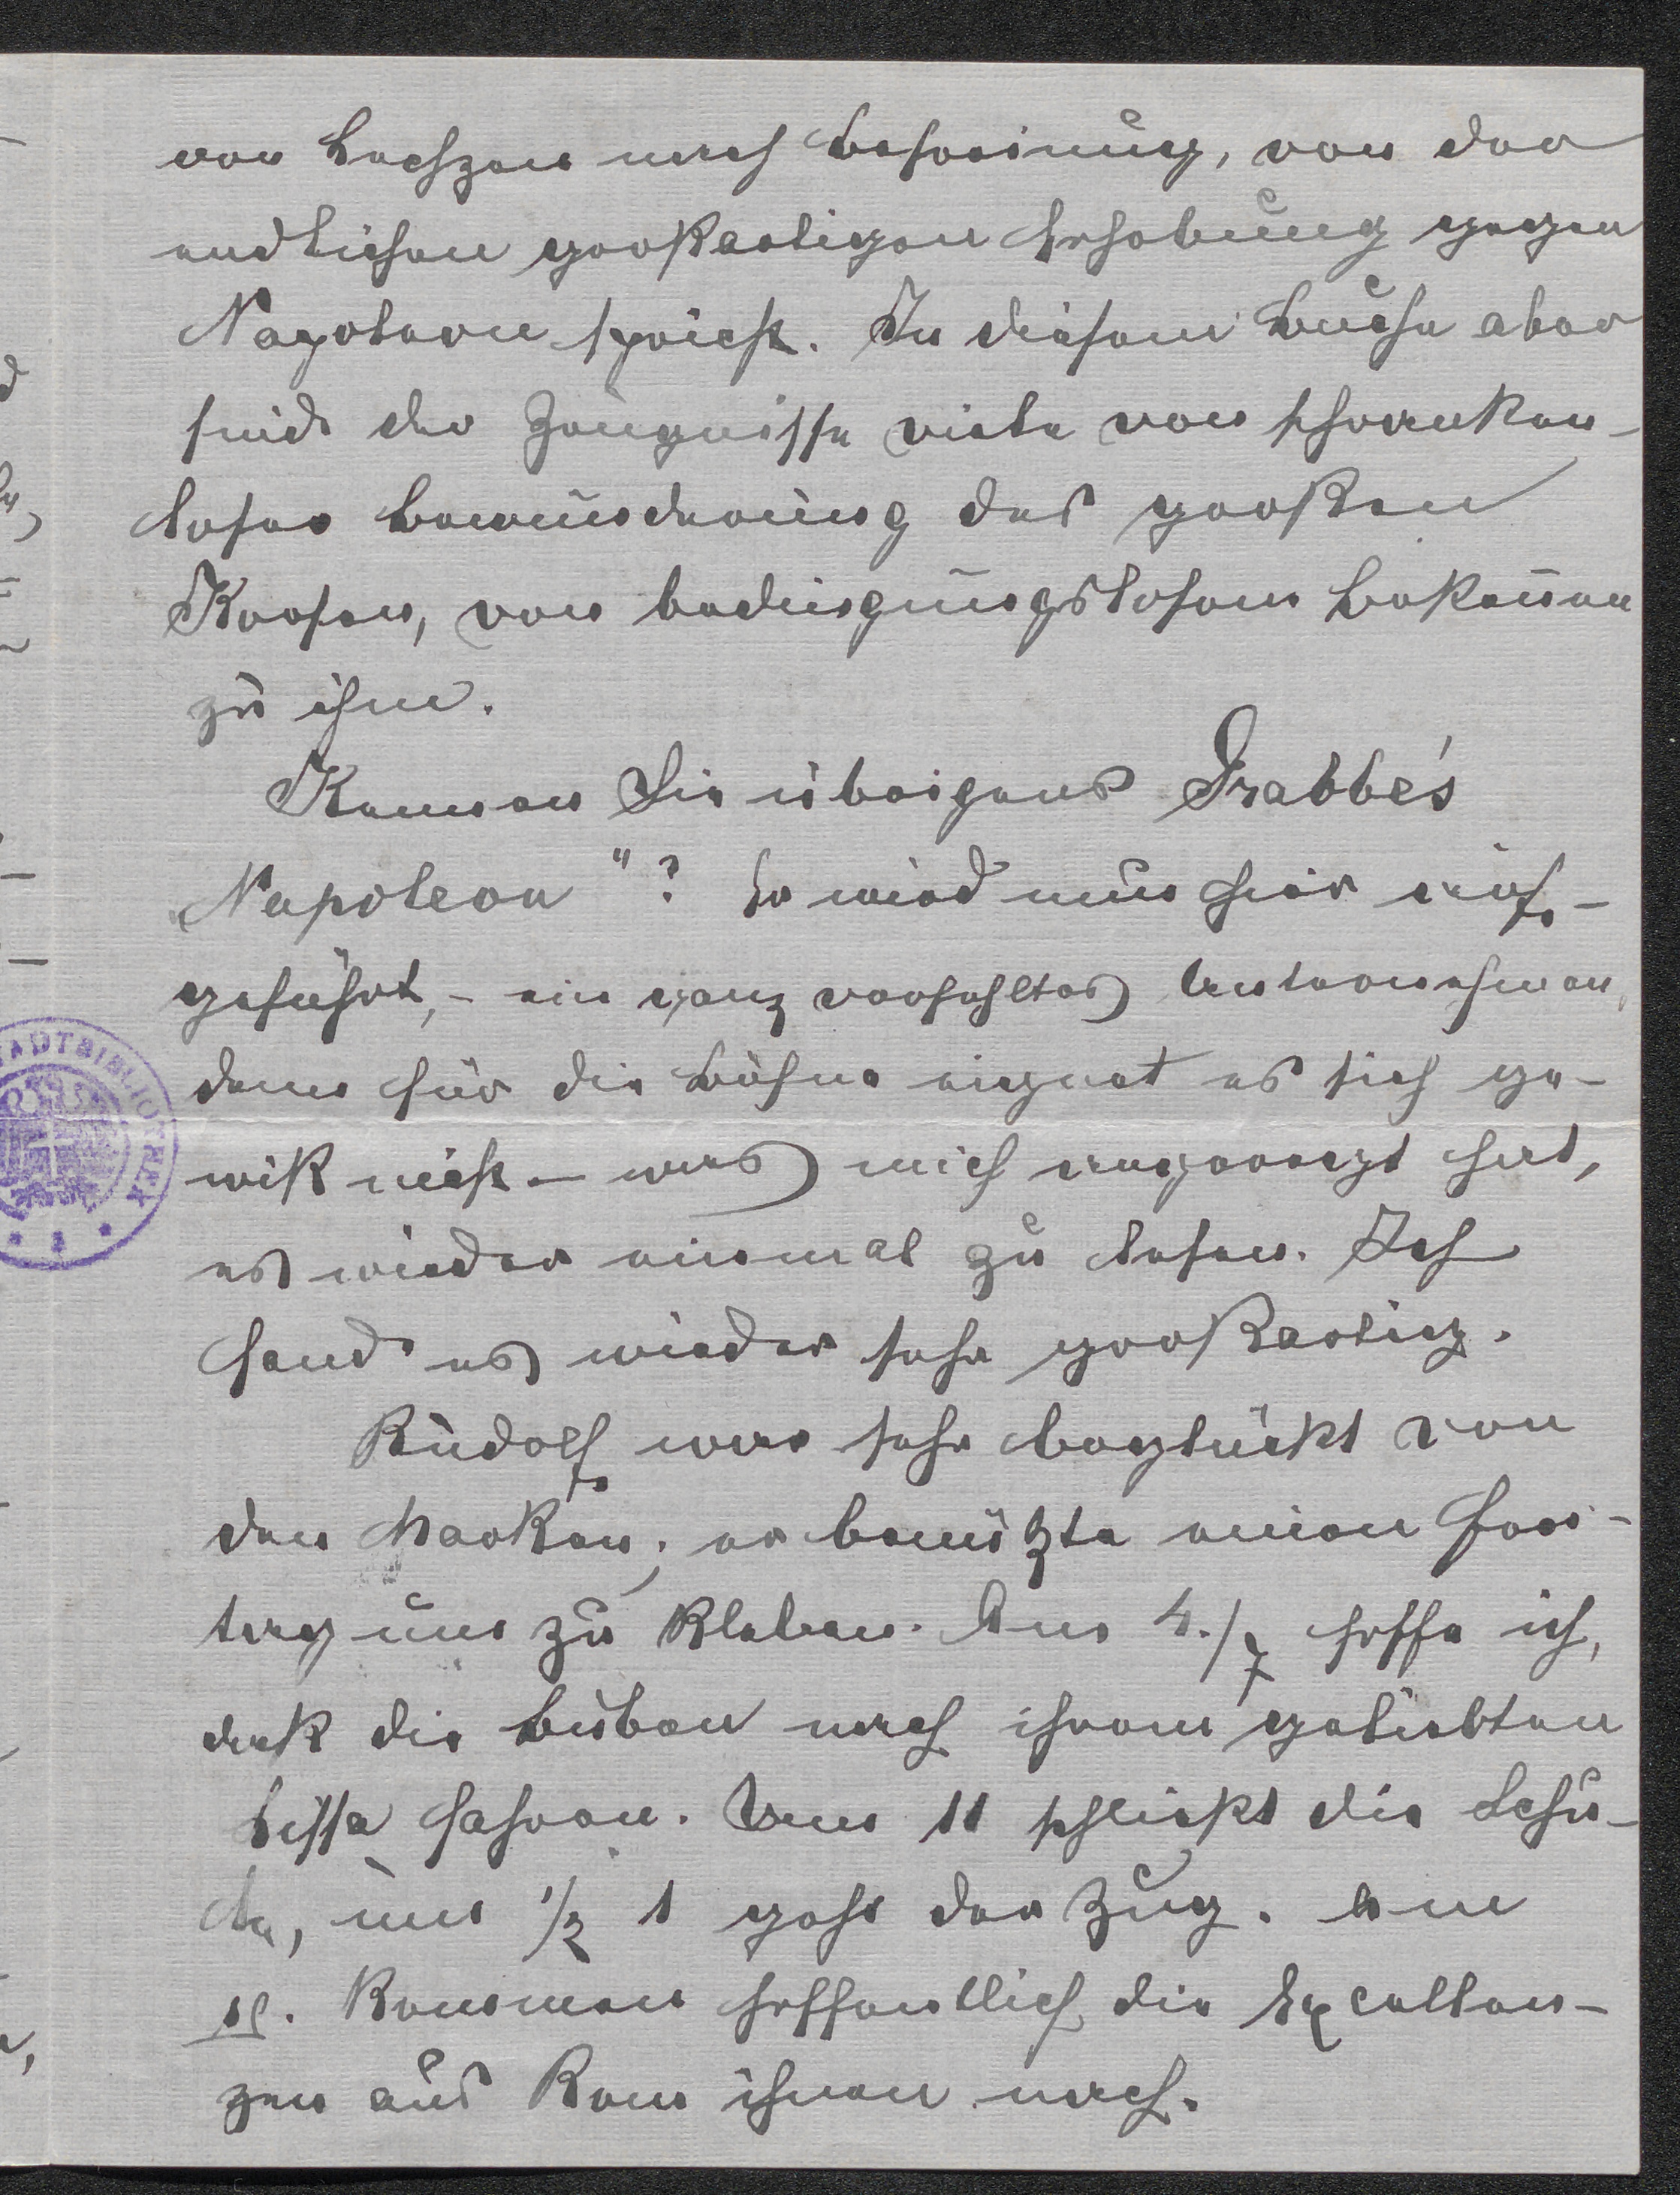 von Lechzen nach Befreiung, von der
endlichen großartigen Erhebung gegen
Napoleon spricht. In diesem Buche aber
sind der Zeugnisse viele von schranken-
loser Bewunderung des großen
Korsen, von bedingungslosem Bekennen
zu ihm.
Kennen Sie übrigens Grabbe's
„Napoleon"? Er wird nun hier auf-
geführt, - ein ganz verfehltes Unternehmen,
denn für die Bühne eignet es sich ge-
wiß nicht – was mich angeregt hat,
es wieder einmal zu lesen. Ich
fand es wieder sehr großartig.
Rudolf war sehr beglückt von
den Marken; er benützte einen Frei-
tag um zu kleben. Am 4./7 hoffe ich,
daß die Buben nach ihrem geliebten
Lissa fahren. Um 11 schließt die Schu-
le, um ½ 1 geht der Zug. Am
11. kommen hoffentlich die Excellen-
zen aus Rom ihnen nach.
STADTBIBLIOTHEK